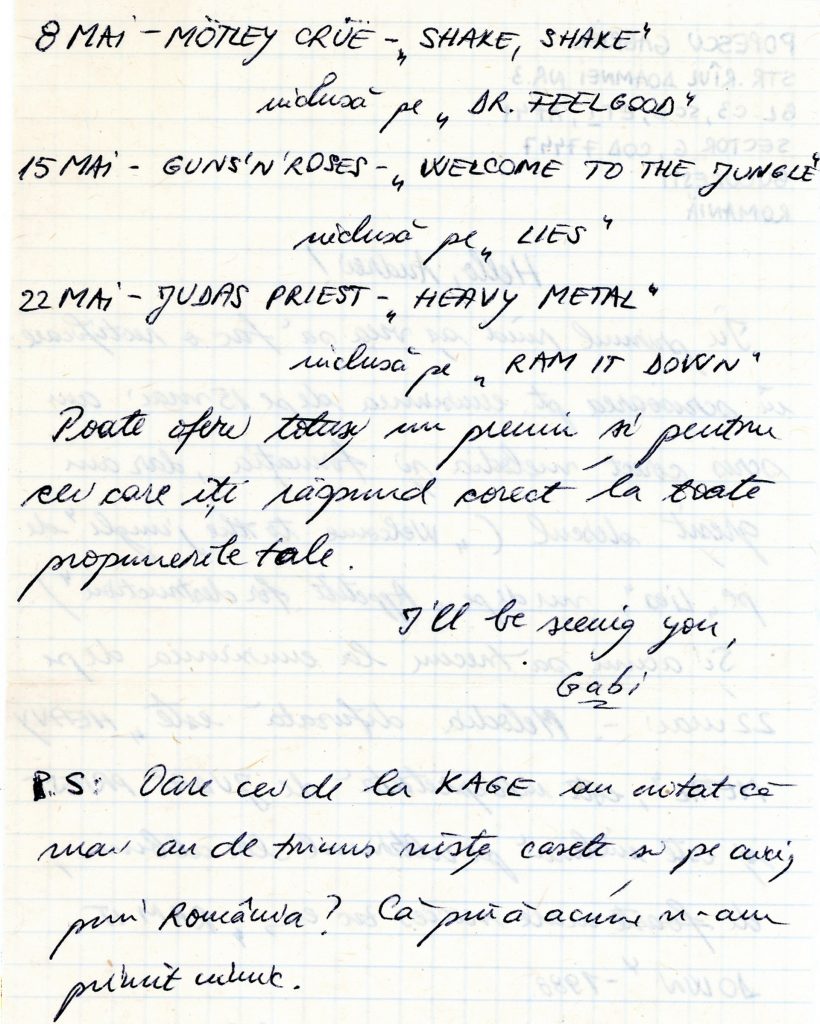 8 MAI - MÖTLEY CRÜE - „ SHAKE, SHAKE"
inclusă pe „ DR. FEELGOOD"
15 MAI - GUNS'N'ROSES - „ WELCOME TO THE JUNGLE"
inclusă pe „ LIES "
22 MAI - JUDAS PRIEST - „ HEAVY METAL"
inclusă pe „ RAM IT DOWN "
Poate oferi totuși un premiu și pentru
cei care îți răspund corect la toate
propunerile tale.
I'll be seeing you,
Gabi
P.S: Oare cei de la KAGE au uitat că
mai au de trimis niște casete și pe aici,
prin România? Că pînă acum n-am
primit nimic.